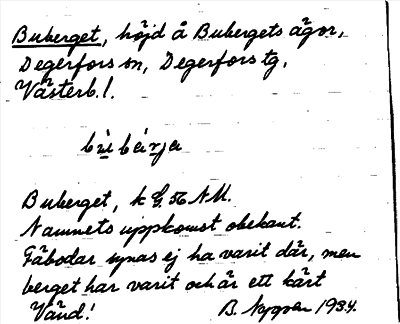 Buberget, höjd å Bubergets ägor,
Degerfors sn, Degerfors tg,
Västerb. l.
Buberget, k
Namnets uppkomst obekant.
Fäbodar synas ej ha varit där, men
berget har varit och är ett kärt
Vänd! B. 1934.